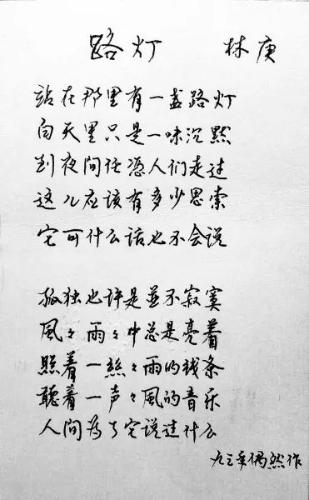 路灯 林庚
站在那里有一盏路灯
白天里只是一味沉默
到夜间任凭人们走过
这儿应该有多少思索
它可什么话也不会说
孤独也许是並不寂寞
風々雨々中总是亮着
照着一丝々雨的线条
聽着一声々風的音乐
人间为了它说过什么
九三年偶然作